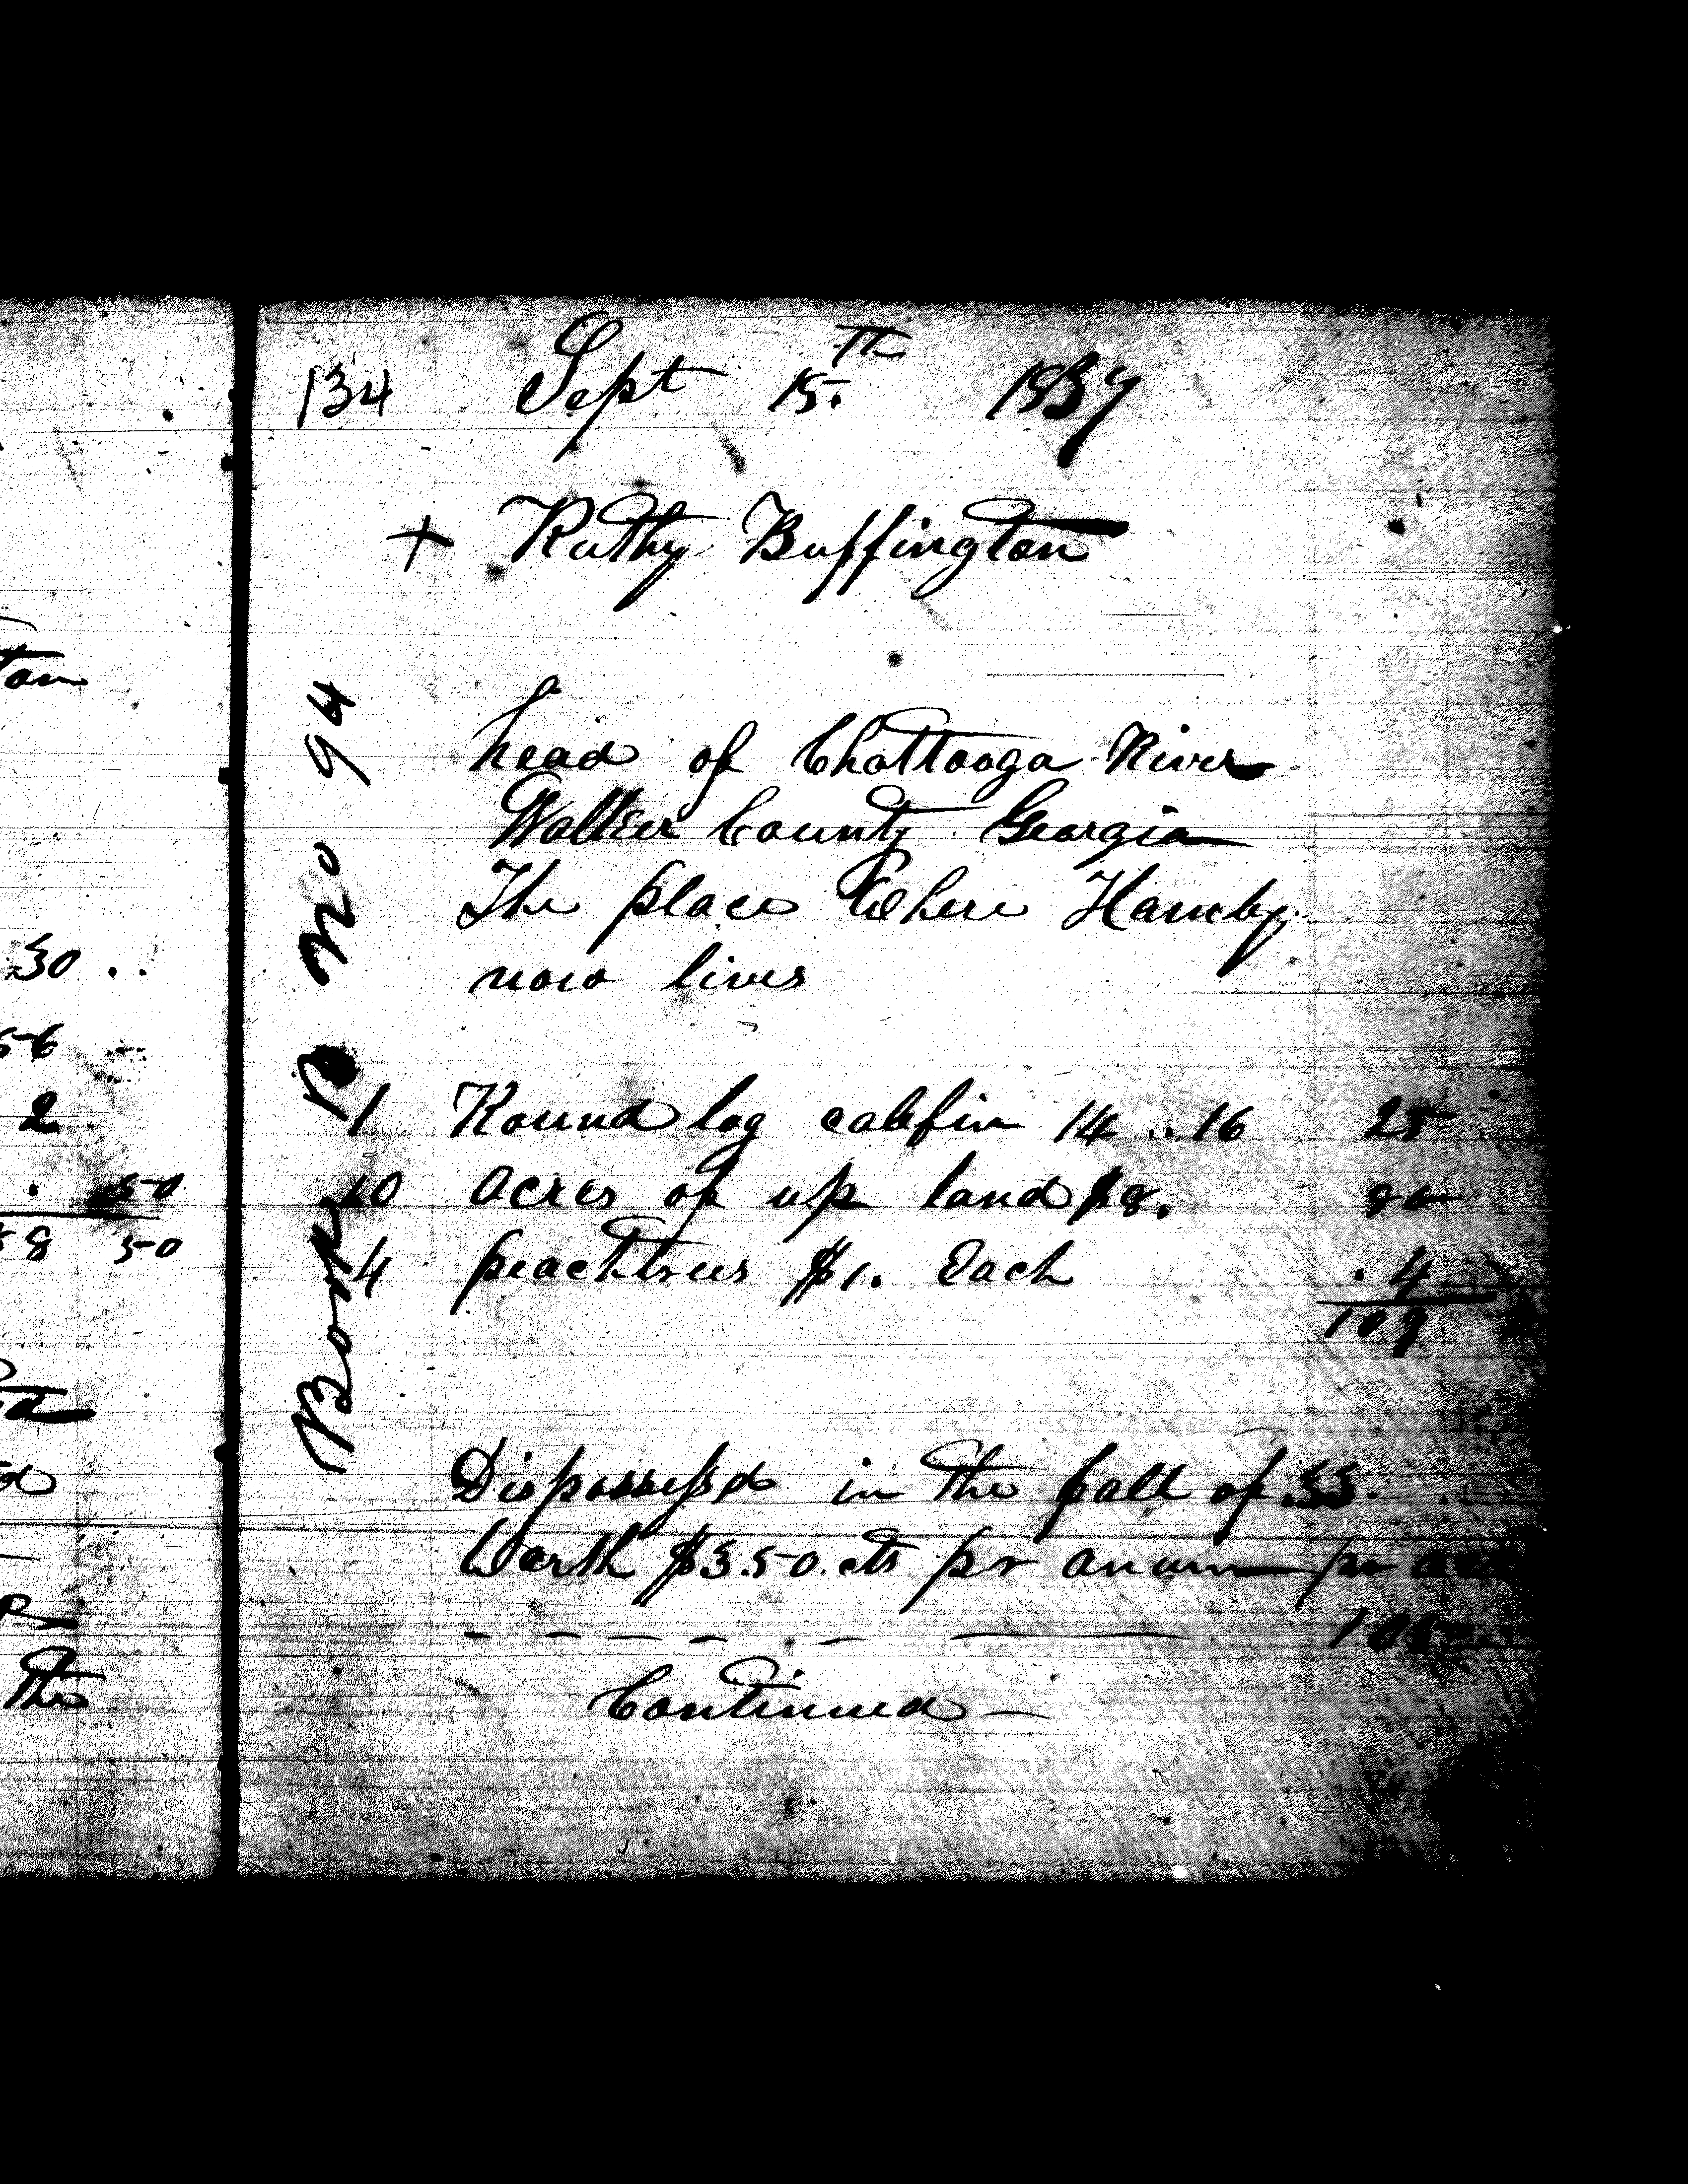 tan
30 ..
56
2
. 50
58 50
The
134 Sept 15.th 1837
+ Kathy Buffington
head of Chattooga River
Walker County Georgia
The place Where Hamby
now lives
1 Round log cabbin 14 .. 16 25
10 acres of up land $8. 80
4 peachtrees $1. Each . 4
109
Dispossessed in the fall of 33.
Worth $3.50.cts pr anum pr
105
Continued —
Book B No 94